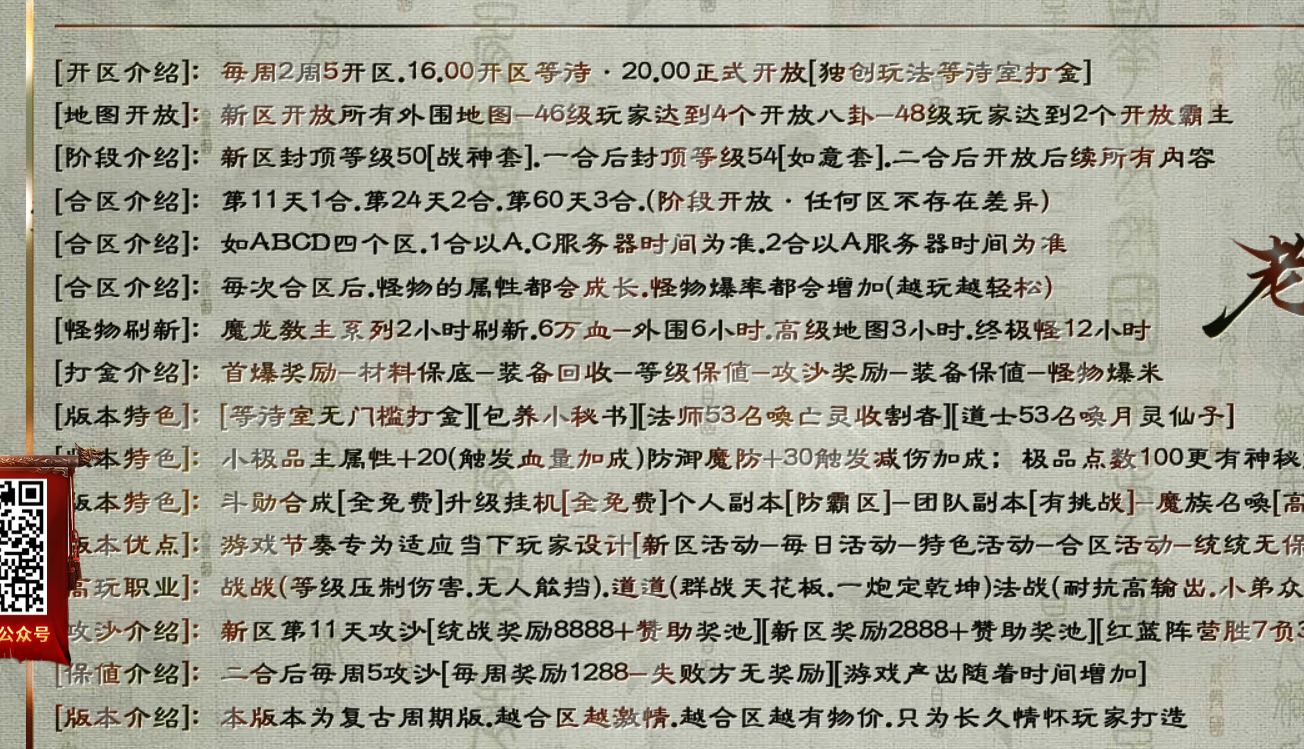 [开区介绍]： 每周2周5开区.16.00开区等待·20.00正式开放[独创玩法等待室打金]
[地图开放]： 新区开放所有外围地图-46级玩家达到4个开放八卦-48级玩家达到2个开放霸主
[阶段介绍]： 新区封顶等级50[战神套].一合后封顶等级54[如意套].二合后开放后续所有内容
[合区介绍]： 第11天1合.第24天2合.第60天3合.(阶段开放·任何区不存在差异)
[合区介绍]： 如ABCD四个区.1合以A.C服务器时间为准.2合以A服务器时间为准
[合区介绍]： 每次合区后.怪物的属性都会成长.怪物爆率都会增加(越玩越轻松)
老
[怪物刷新]： 魔龙教主系列2小时刷新.6万血-外围6小时.高级地图3小时.终极怪12小时
[打金介绍]： 首爆奖励-材料保底-装备回收-等级保值-攻沙奖励-装备保值-怪物爆米
[版本特色]： [等待室无门槛打金][包养小秘书][法师53召唤亡灵收割者][道士53召唤月灵仙子]
本特色]： 小极品主属性+20(触发血量加成)防御魔防+30触发减伤加成；极品点数100更有神秘
版本特色]： 斗勋合成[全免费]升级挂机[全免费]个人副本[防霸区]-团队副本[有挑战]-魔族召唤[高
版本优点]： 游戏节奏专为适应当下玩家设计[新区活动-每日活动-特色活动-合区活动-统统无保
高玩职业]： 战战(等级压制伤害.无人能挡).道道(群战天花板.一炮定乾坤)法战(耐抗高输出.小弟众
公众号
攻沙介绍]： 新区第11天攻沙[统战奖励8888+赞助奖池][新区奖励2888+赞助奖池][红蓝阵营胜7负3
[保值介绍]： 二合后每周5攻沙[每周奖励1288-失败方无奖励][游戏产出随着时间增加]
[版本介绍]： 本版本为复古周期版.越合区越激情.越合区越有物价.只为长久情怀玩家打造